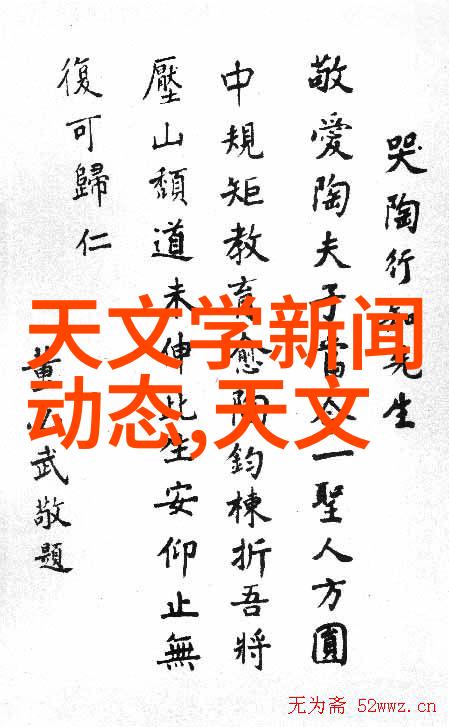 哭陶行知先生
敬愛陶夫子當今一聖人方圓
中規矩教育愈陶鈞棟折吾將
壓山頽道未伸此生安仰止無
復可歸仁
董必武敬題
天文学新闻
动态,天文
无为斋 52wwz.cn